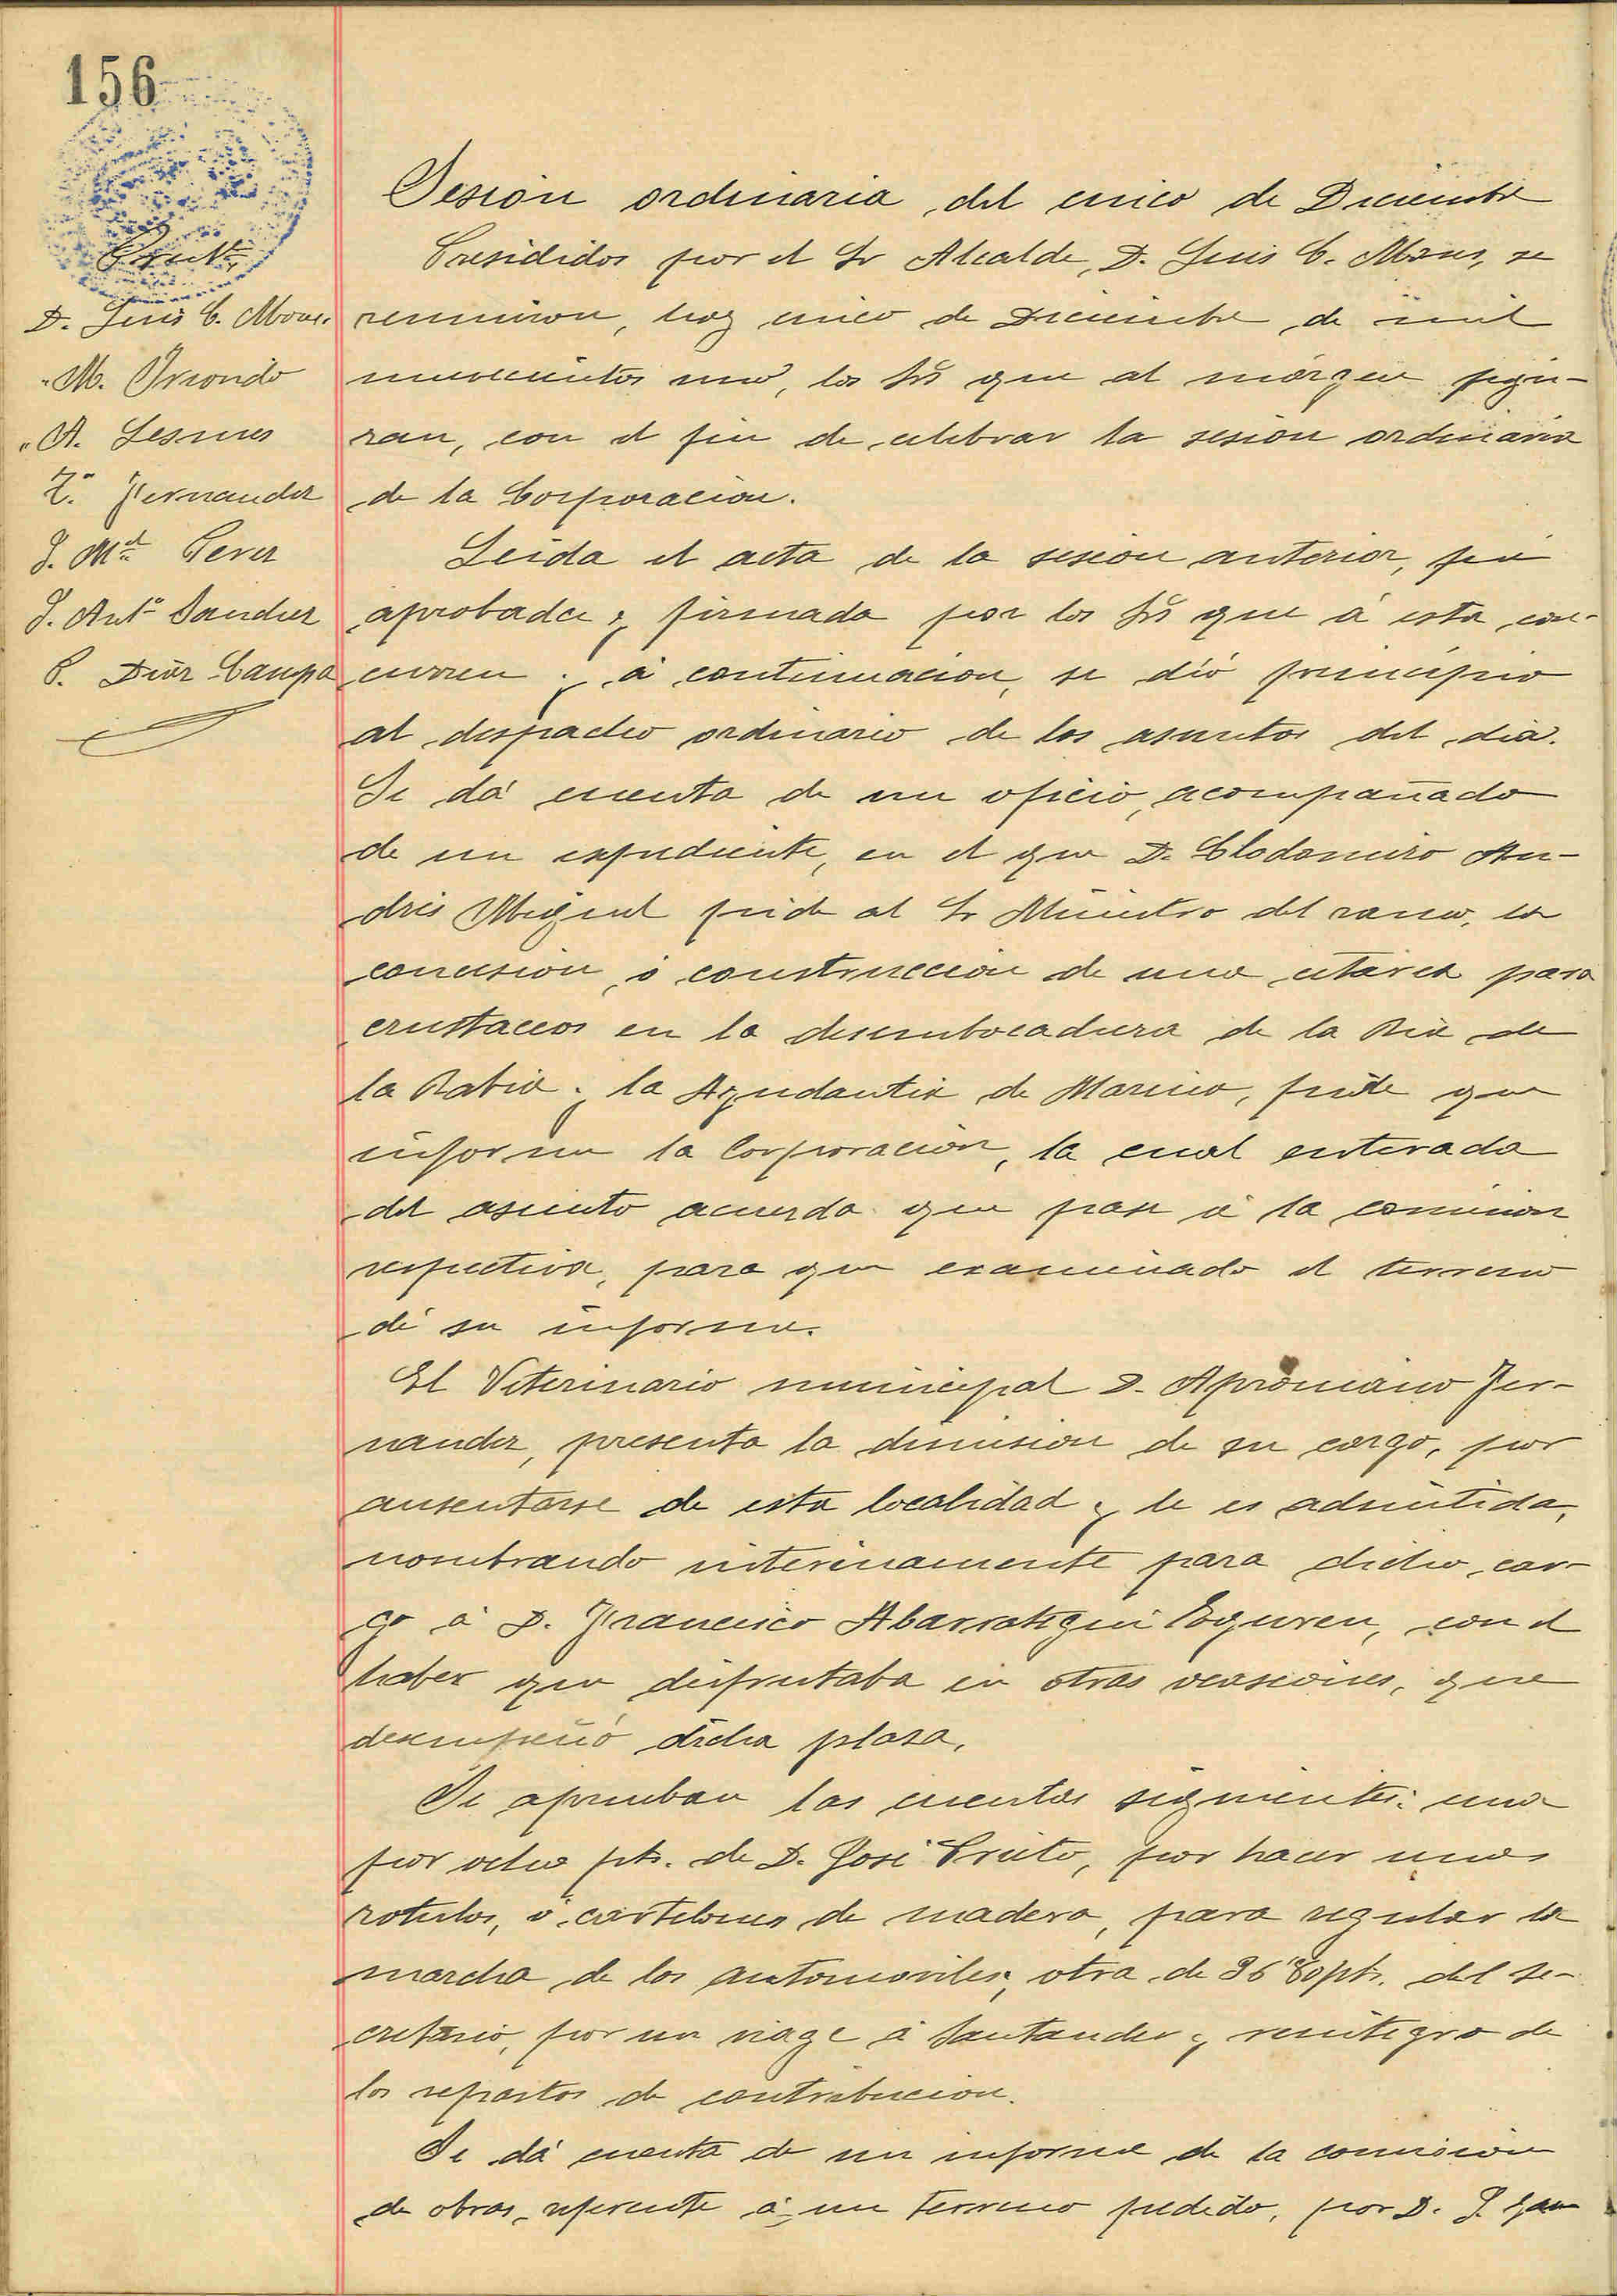 156
D. Luis C. Mones
" M. Iriondo
" A. Lesmes
F.º Fernandez
J. M.ª Perez
J. Ant.º Sanchez
P. Diaz Campa
Sesión ordinaria del cinco de Diciembre
Presididos por el Sr Alcalde, D. Luis C. Mones, se
reunieron, hoy cinco de Diciembre de mil
novecientos uno, los Srs que al márgen figu-
ran, con el fin de celebrar la sesion ordinaria
de la Corporacion.
Leida el acta de la sesion anterior, fué
aprobada y firmada por los Srs que á esta con-
curren y á continuacion, se dió principio
al despacho ordinario de los asuntos del dia.
Se dá cuenta de un oficio, acompañado
de un expediente, en el que D. Clodomiro An-
drés Miguel pide al Sr Ministro del ramo, la
concesion, ó construccion de una cetarea para
crustaceos en la desembocadura de la Ria de
la Rabia y la Ayudantia de Marina, pide que
informe la Corporación, la cual enterada
del asunto acuerda que pase á la comision
respectiva, para que examinado el terreno
dé su informe.
El Veterinario municipal D. Aproniano Fer-
nandez, presenta la dimision de su cargo, por
ausentarse de esta localidad y le es admitida,
nombrando interinamente para dicho car-
go á D. Francisco Abarrategui Eguren, con el
haber que disfrutaba en otras ocasiones, que
desempeñó dicha plaza.
Se aprueban las cuentas siguientes: una
por ocho pts. de D. José Prieto, por hacer unos
rotulos, ó cartelones de madera, para regular la
marcha de los automoviles; otra de 36'80 pts. del se-
cretario, por un viage á Santander y reintegro de
los repartos de contribucion.
Se dá cuenta de un informe de la comision
de obras, referente á un terreno pedido, por D. J.